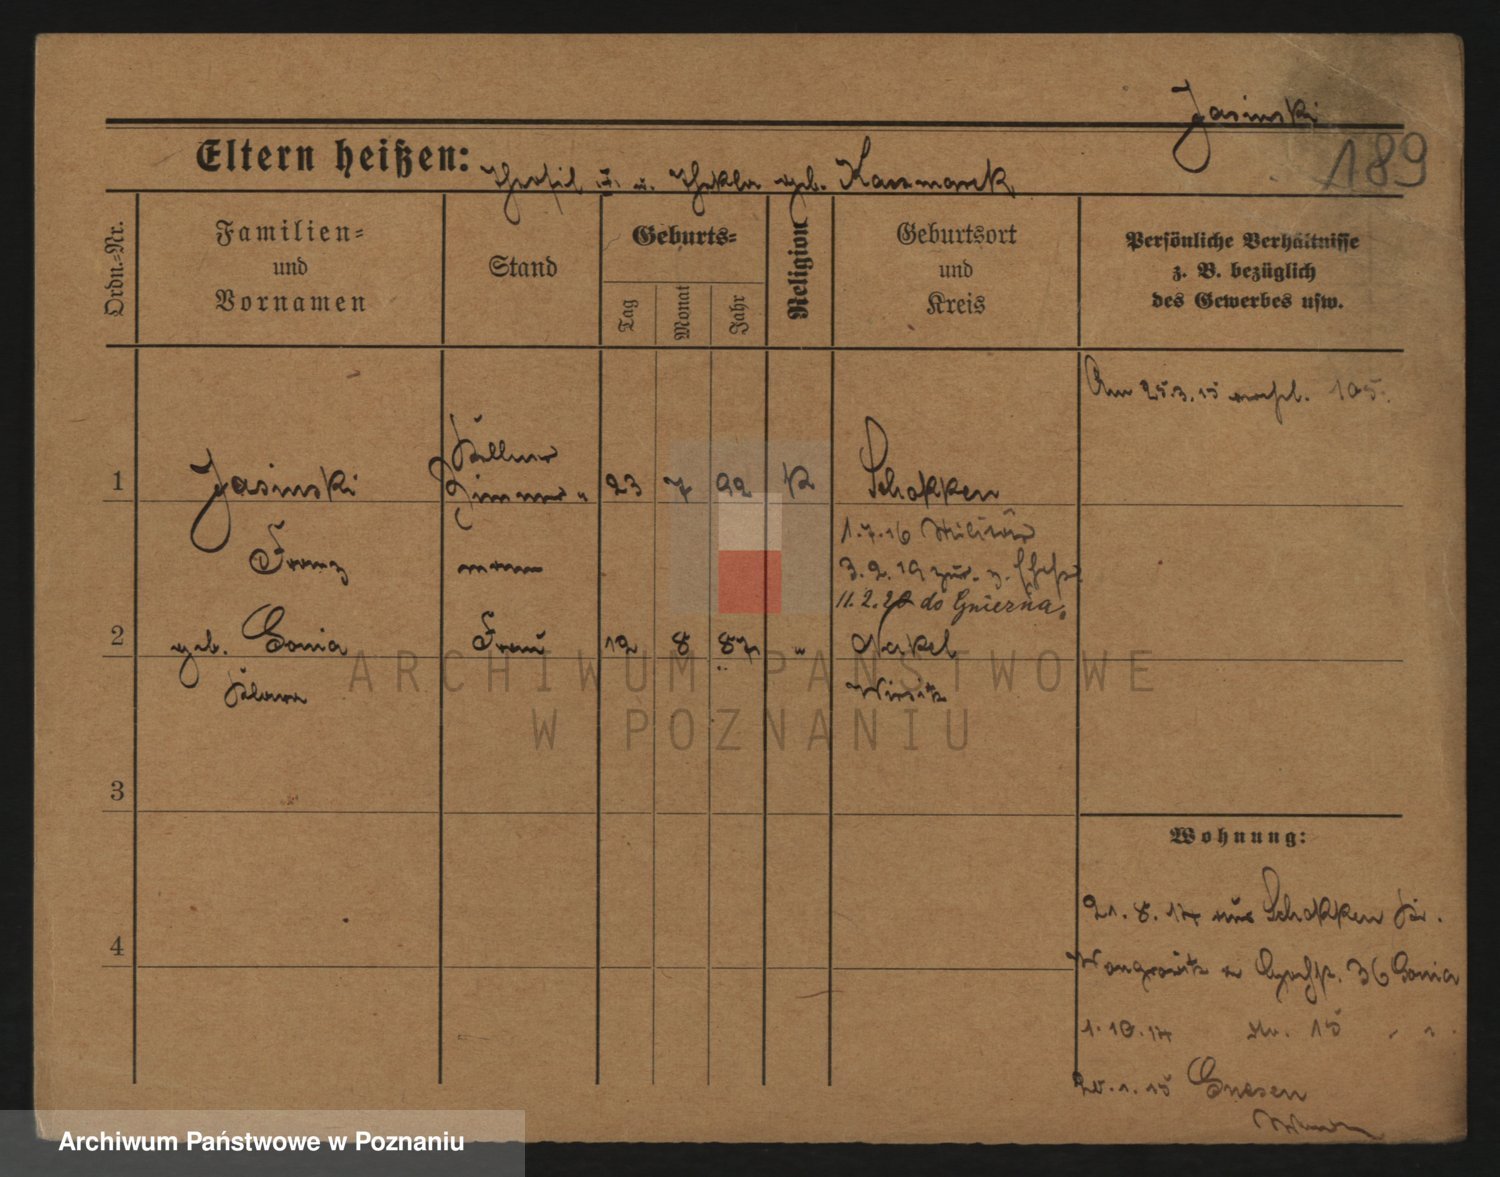 Jasinski
189
Eltern heißen: Theofil u. Thekla geb. Kaczmarek
Ordn.-Nr.
Familien-
und
Vornamen
Stand
Geburts-
Tag
Monat
Jahr
Religion
Geburtsort
und
Kreis
Persönliche Verhältnisse
z. B. bezüglich
des Gewerbes usw.
Am 25.3.15 105.
1 Jasinski Zimmer- 23 7 92 K Schokken
Kellner
Franz mann
1.7.16 Militär
3.2.19 zur. z.
11.2.20 do Gniezna.
2 geb. Gonia Frau 12 8 87 " Nakel
Klara Wirsitz
3
4
Wohnung:
21.8.14 aus Schokken Kr.
Wongrowitz 36 Gonia
1.10.14 15 " "
20.1.15 Gnesen
ARCHIWUM PAŃSTWOWE
W POZNANIU
Archiwum Państwowe w Poznaniu